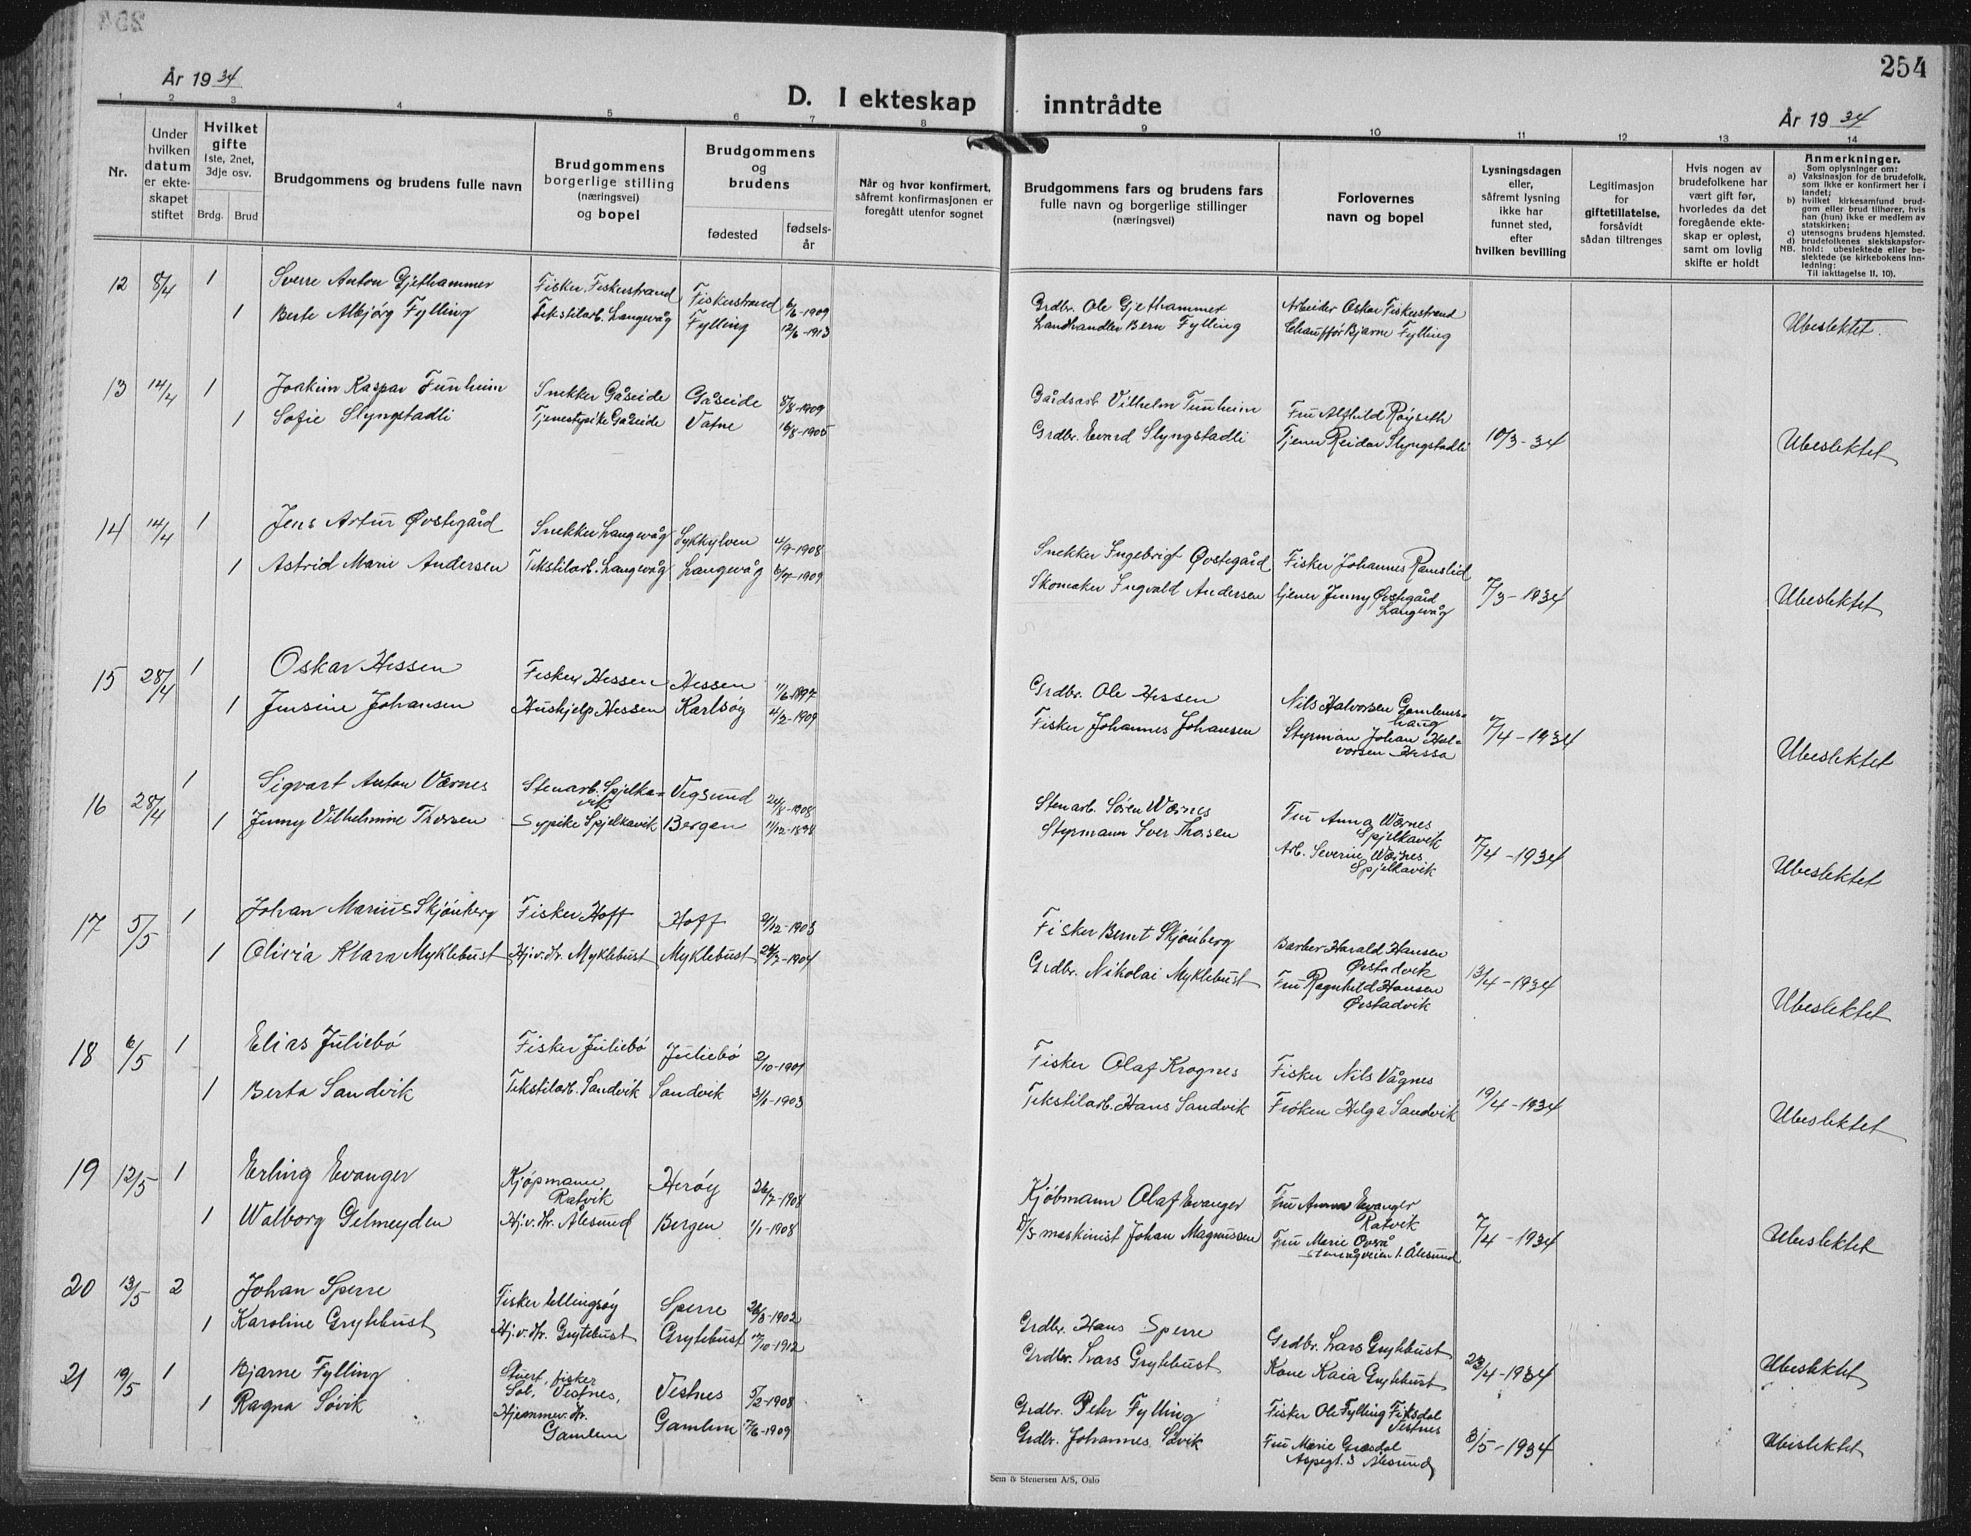 254
År 1934
D. I ekteskap inntrådte
År 1934
1 2 3 4 5 6 7 8 9 10 11 12 13 14
Nr.
Under hvilken datum er ekteskapet stiftet
Hvilket gifte
1ste, 2net, 3dje osv.
Brdg. Brud
Brudgommens og brudens fulle navn
Brudgommens borgerlige stilling (næringsvei) og bopel
Brudgommens og brudens
fødested
fødselsår
Når og hvor konfirmert, såfremt konfirmasjonen er foregått utenfor sognet
Brudgommens fars og brudens fars fulle navn og borgerlige stillinger (næringsvei)
Forlovernes navn og bopel
Lysningsdagen eller, såfremt lysning ikke har funnet sted, efter hvilken bevilling
Legitimasjon for giftetillatelse, forsåvidt sådan tiltrenges
Hvis nogen av brudefolkene har vært gift før, hvorledes da det foregående ekteskap er opløst, samt om lovlig skifte er holdt
Anmerkninger.
Som oplysninger om:
a) Vaksinasjon for de brudefolk, som ikke er konfirmert her i landet;
b) hvilket kirkesamfund brudgom eller brud tilhører, hvis han (hun) ikke er medlem av statskirken;
c) utensogns brudens hjemsted.
d) brudefolkenes slektskapsforhold: ubeslektede eller beslektede (se kirkebokens innledning:
NB.
Til iakttagelse II, 10).
12 8/4 1 Sverre Anton Gjethammer Fisker, Fiskerstrand Fiskerstrand 6/6-1909 Grdbr. Ole Gjethammer Arbeider Oskar Fiskerstrand
1 Berte Albjørg Fylling Tekstilarb. Langevåg Fylling 12/6-1913 Landhandler Bern Fylling Chauffør Bjarne Fylling Ubeslektet.
13 14/4 1 Joakim Kaspar Tunheim Snekker Gåseide Gåseide 8/8-1909 Gårdsarb. Vilhelm Tunheim Fru Alfhild Røyseth
1 Sofie Slyngstadli Tjenestepike Gåseide Vatne 16/8-1905 Grdbr. Evard Slyngstadli Tjener Reidar Slyngstadli 10/3-34 Ubeslektet
14 14/4 1 Jens Artur Øvstegård Snekker Langevåg Sykkylven 4/9-1908 Snekker Ingebrigt Øvstegård Fisker Johannes Ramslid
1 Astrid Marie Andersen Tekstilarb. Langevåg Langevåg 6/7-1909 Skomaker Ingvald Andersen tjener Jenny Øvstegård Langevåg 7/3-1934 Ubeslektet
15 28/4 1 Oskar Hessen Fisker Hessen Hessen 11/6-1897 Grdbr. Ole Hessen Nils Halvorsen Gamlemshaug
1 Jensine Johansen Hushjelp Hessen Karlsøy 4/3-1909 Fisker Johannes Johansen Styrman Johan Halvorsen Hessa 7/4-1934 Ubeslektet
16 28/4 1 Sigvart Anton Værnes Stenarb. Spjelkavik Vegsund 24/8-1908 Stenarb. Søren Wærnes Fru Anna Wærnes Spjelkavik
1 Jenny Vilhelmine Thorsen Sypike Spjelkavik Bergen 11/12-1898 Styrmann Iver Thorsen Arb. Severine Wærnes Spjelkavik 7/4-1934 Ubeslektet
17 5/5 1 Johan Marius Skjønberg Fisker Hoff Hoff 9/12-1903 Fisker Bernt Skjønberg Barber Harald Hansen Ørstadvik
1 Olivia Klara Myklebust Hj.v.Hr. Myklebust Myklebust 24/7-1904 Grdbr. Nikolai Myklebust Fru Ragnhild Hansen Ørstadvik 13/4-1934 Ubeslektet
18 6/5 1 Elias Juliebø Fisker Juliebø Juliebø 2/10-1901 Fisker Olaf Krognes Fisker Nils Vågnes
1 Berta Sandvik Tekstilarb. Sandvik Sandvik 3/1-1903 Tekstilarb. Hans Sandvik Frøken Helga Sandvik 19/4-1934 Ubeslektet
19 12/5 1 Erling Evanger Kjøpmann Ratvik Herøy 26/7-1908 Kjøbmann Olaf Evanger Fru Anna Evanger Ratvik
1 Walborg Gelmeyden Hj.v.Hr. Ålesund Bergen 1/1-1908 D/S maskinist Johan Magnussen Fru Marie Overå Ålesund 7/4-1934 Ubeslektet
20 13/5 2 Johan Sperre Fisker Ellingsøy Sperre 26/8-1902 Grdbr. Hans Sperre Grdbr. Lars Grytebust
1 Karoline Grytebust Hj.v.Hr. Grytebust Grytebust 17/10-1912 Grdbr. Lars Grytebust Kone Kaia Grytebust 23/4-1934 Ubeslektet
21 19/5 1 Bjarne Fylling Stuert, fisker Sol, Vestnes, Vestnes 5/2-1908 Grdbr. Petr Fylling Fisker Ole Fylling Fiksdal Vestnes
1 Ragna Søvik Hjemmev. Hr. Gamlem Gamlem 17/6-1909 Grdbr. Johannes Søvik Fru Marie Ålesund 3/5-1934 Ubeslektet
Sem & Stenersen A/S, Oslo